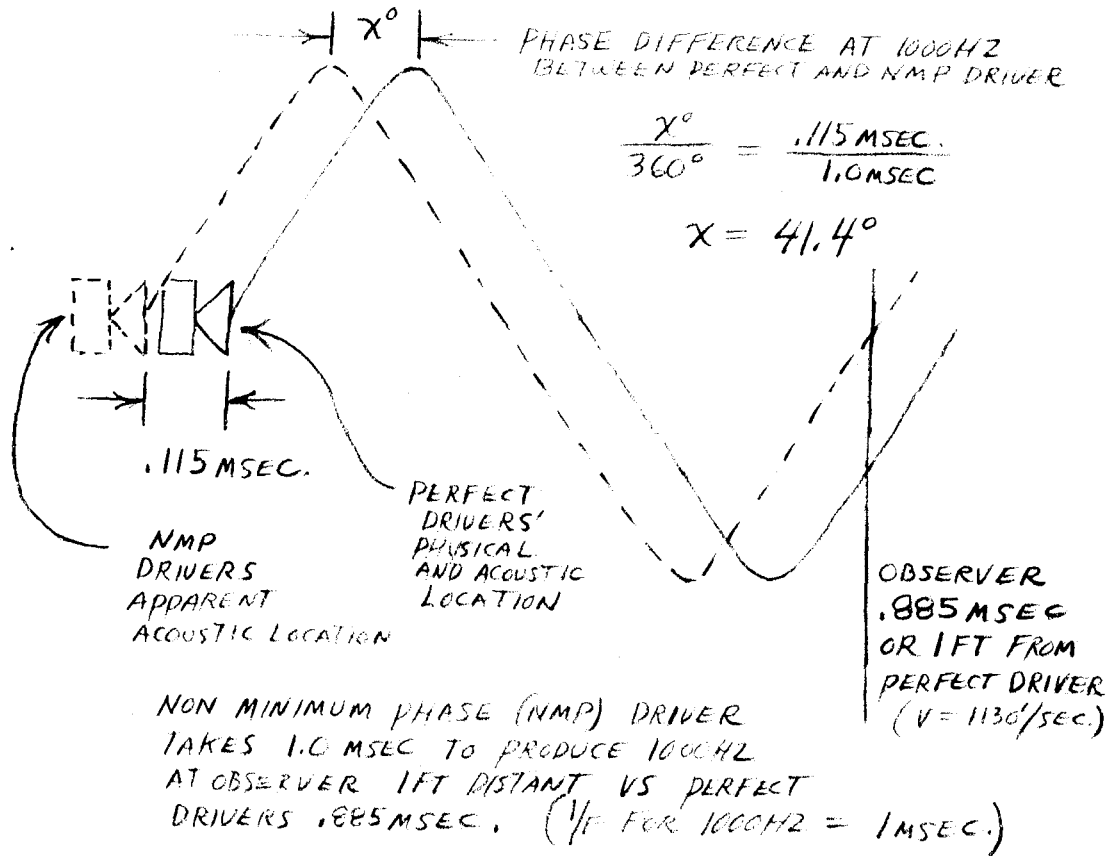 x°
PHASE DIFFERENCE AT 1000HZ
BETWEEN PERFECT AND NMP DRIVER
x° / 360° = .115 MSEC. / 1.0 MSEC
x = 41.4°
.115 MSEC.
NMP
DRIVERS
APPARENT
ACOUSTIC LOCATION
PERFECT
DRIVERS'
PHYSICAL
AND ACOUSTIC
LOCATION
OBSERVER
.885 MSEC
OR 1 FT FROM
PERFECT DRIVER
(V = 1130'/SEC.)
NON MINIMUM PHASE (NMP) DRIVER
TAKES 1.0 MSEC TO PRODUCE 1000HZ
AT OBSERVER 1FT DISTANT VS PERFECT
DRIVERS .885 MSEC. (1/F FOR 1000HZ = 1 MSEC.)